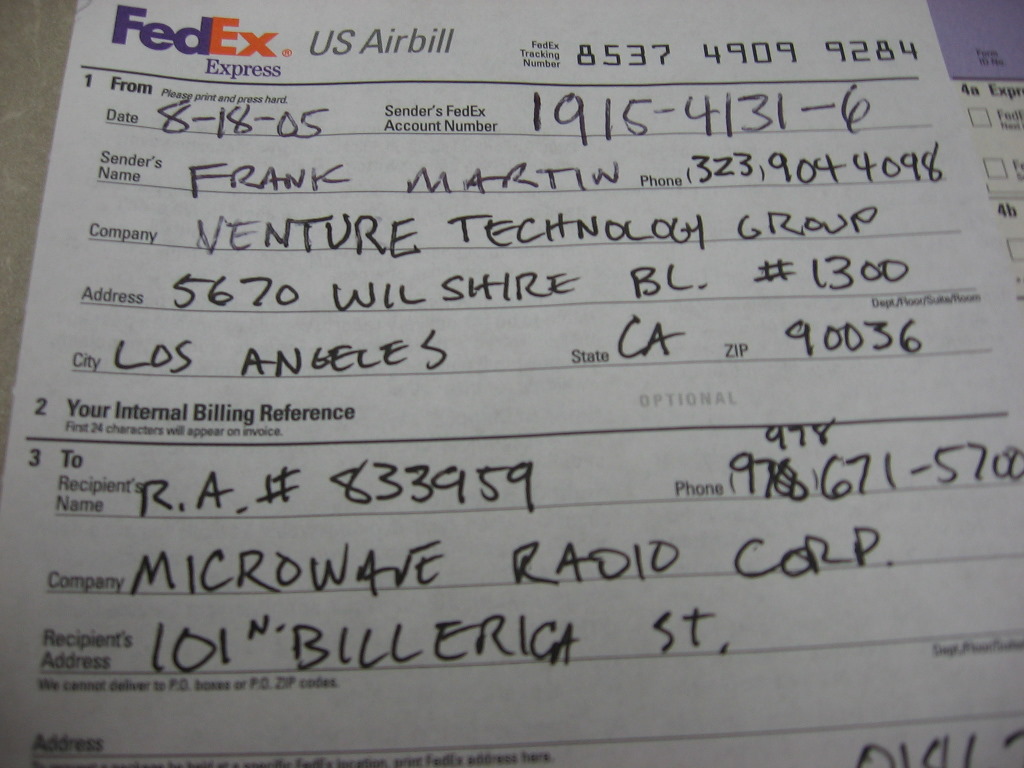 FedEx® US Airbill FedEx Tracking Number 8537 4909 9284
Express
1 From Please print and press hard.
4a Expr
Date 8-18-05 Sender's FedEx Account Number 1915-4131-6
Sender's Name FRANK MARTIN Phone (323) 904 4098
4b
Company VENTURE TECHNOLOGY GROUP
Address 5670 WILSHIRE BL. #1300
Dept./Floor/Suite/Room
City LOS ANGELES State CA ZIP 90036
2 Your Internal Billing Reference OPTIONAL
First 24 characters will appear on invoice.
978
3 To
Recipient's Name R.A. # 833959 Phone (978) 671-5700
Company MICROWAVE RADIO CORP.
Recipient's Address 101 N. BILLERICA ST.
We cannot deliver to P.O. boxes or P.O. ZIP codes.
Address
To request a package be held at a specific FedEx location, print FedEx address here.